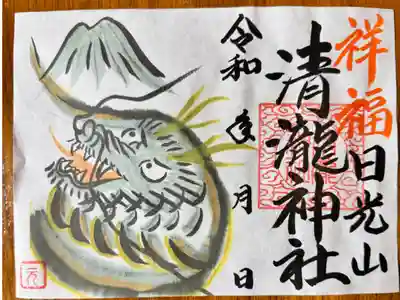 祥福
日光山
清瀧神社
令和 年 月 日